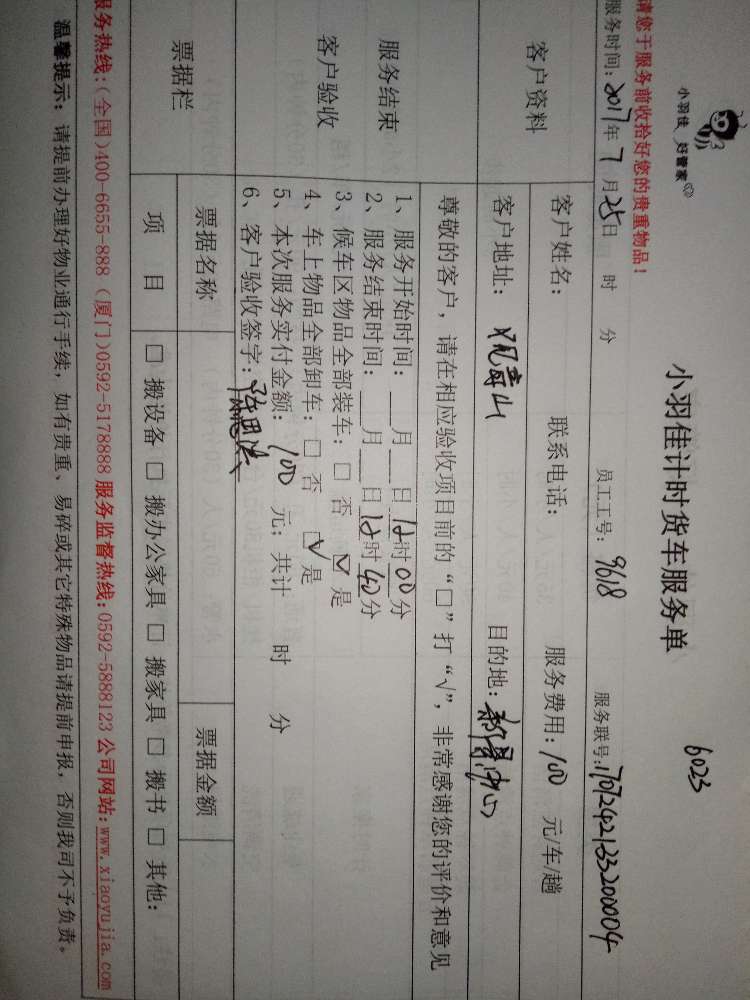 小羽佳 好管家
小羽佳计时货车服务单
6023
请您于服务前收拾好您的贵重物品!
服务时间:2017年7月25日 时 分 员工工号:9618 服务联号:1707242133200004
客户资料
客户姓名: 联系电话: 服务费用:100 元/车/趟
客户地址:观音山 目的地:
尊敬的客户,请在相应验收项目前的“□”打“√”,非常感谢您的评价和意见
服务结束
客户验收
1、服务开始时间: 月 日 12时00分
2、服务结束时间: 月 日 12时40分
3、候车区物品全部装车:□ 否 ☑ 是
4、车上物品全部卸车:□ 否 ☑ 是
5、本次服务实付金额:100 元;共计 时 分
6、客户验收签字:
票据栏
票据名称 票据金额
项 目 □ 搬设备 □ 搬办公家具 □ 搬家具 □ 搬书 □ 其他:
服务热线:(全国)400-6655-888 (厦门)0592-5178888 服务监督热线:0592-5888123 公司网站:www.xiaoyujia.com
温馨提示:请提前办理好物业通行手续,如有贵重、易碎或其它特殊物品请提前申报,否则我司不予负责。